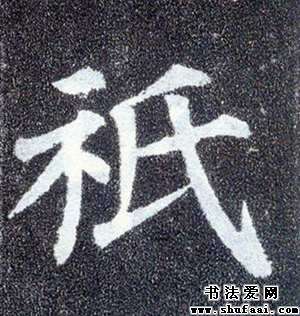 祇
书法爱网
www.shufaai.com